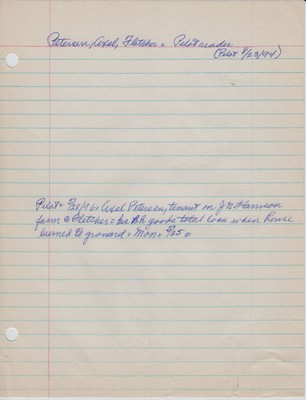 Petersen, Axel, Fletcher = Pilot reader
(Pilot 8/23/94)
Pilot = 5/28/96 = Axel Petersen, tenant on J N Harrison
farm @ Fletcher = his h h goods total loss when home
burned to ground = Mon = 5/25 =